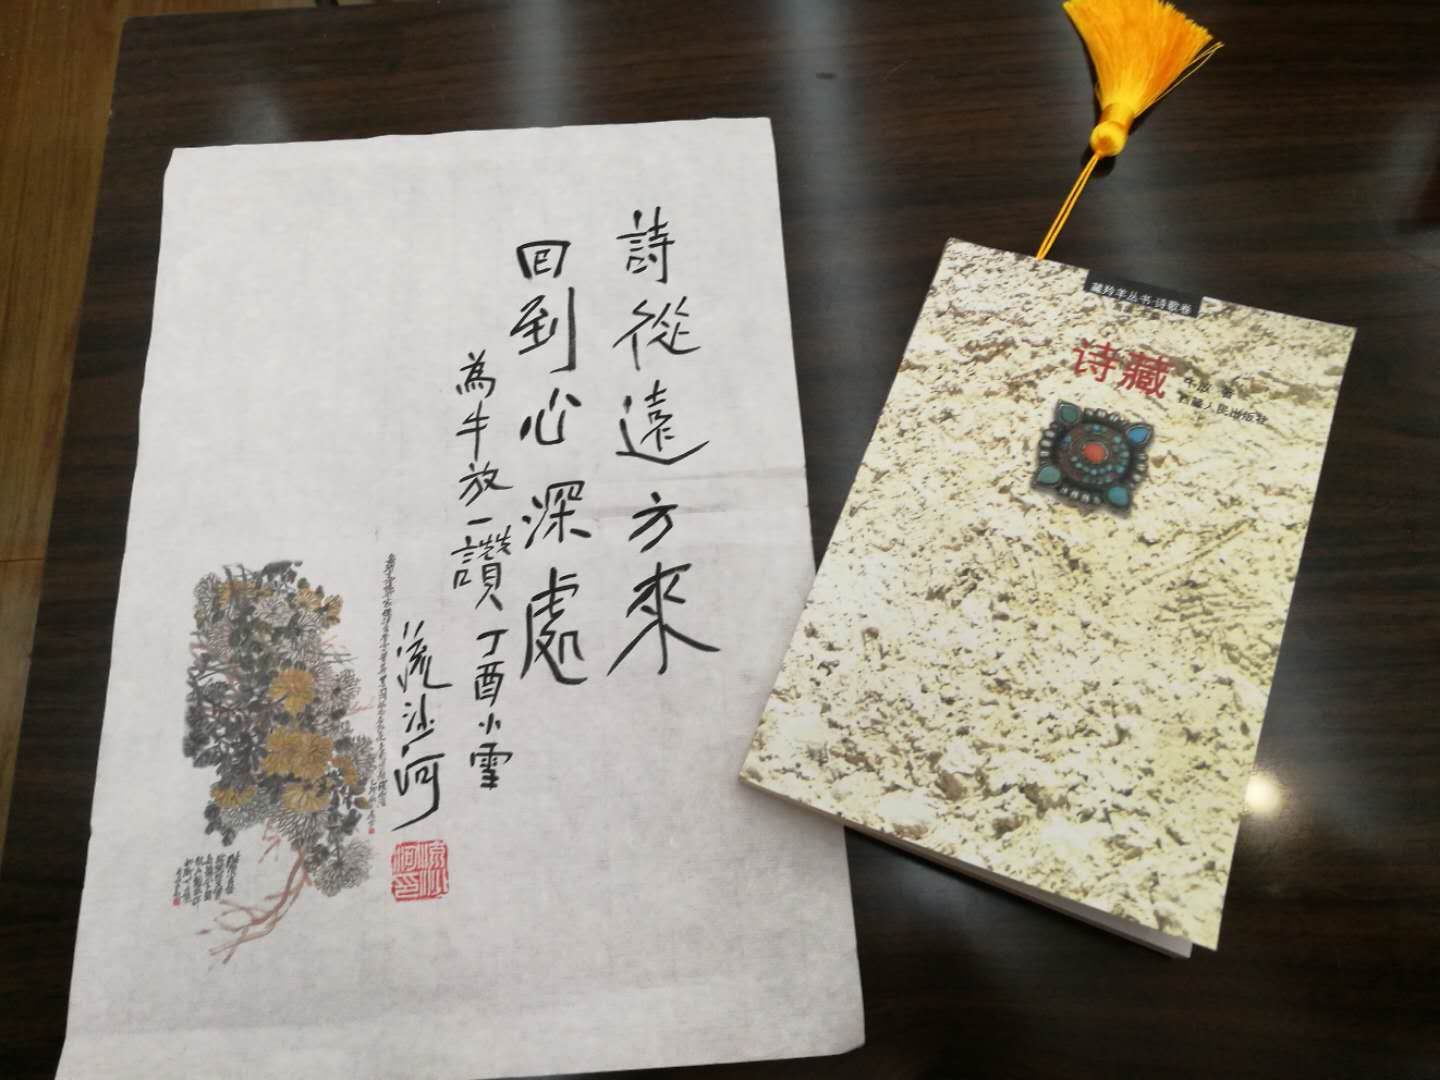 詩從遠方來
回到心深處
為牛放一讚 丁酉小雪
流沙河
流沙河印
藏羚羊丛书·诗歌卷
诗藏
牛放 著
西藏人民出版社